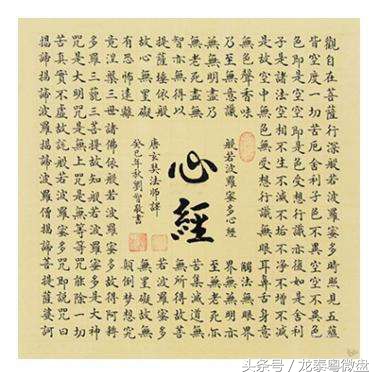 觀自在菩薩行深般若波羅蜜多時照見五蘊
皆空度一切苦厄舍利子色不異空空不異色
色即是空空即是色受想行識亦復如是舍利
子是諸法空相不生不滅不垢不淨不增不減
是故空中無色無受想行識無眼耳鼻舌身意
無色聲香味觸法無眼界
乃至無意識界無無明亦
無無明盡乃至無老死亦
無老死盡無苦集滅道無
智亦無得以無所得故菩
提薩埵依般若波羅蜜多
故心無罣礙無罣礙故無
有恐怖遠離顛倒夢想究
竟涅槃三世諸佛依般若波羅蜜多故得阿耨
多羅三藐三菩提故知般若波羅蜜多是大神
咒是大明咒是無上咒是無等等咒能除一切
苦真實不虛故說般若波羅蜜多咒即說咒曰
揭諦揭諦波羅揭諦波羅僧揭諦菩提薩婆訶
般若波羅蜜多心經
心經
唐玄奘法師譯
癸巳年秋劉敬書
头条号/龙泰粤微盘